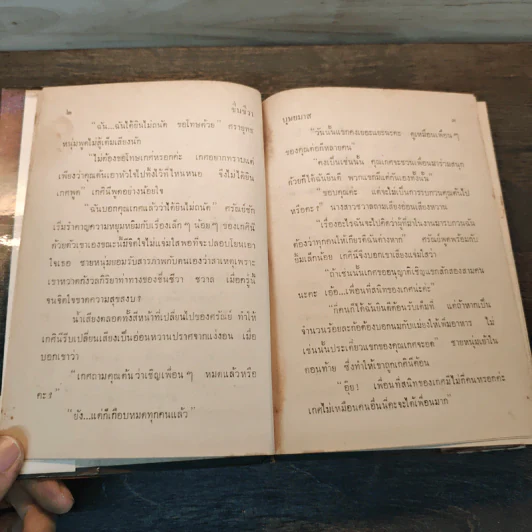 ๒ ชั่นชีวา
"ฉัน...ฉันได้ยินไม่ถนัด ขอโทษด้วย" ตรายุทธ
หนุ่มพูดไม่สู้เต็มเสียงนัก
"ไม่ต้องขอโทษเกศหรอกค่ะ เกศอยากทราบแต่
เพียงว่าคุณต้นเอาหัวใจไปทิ้งไว้ที่ไหนหนอ จึงไม่ได้ยิน
เกศพูด" เกศินีพูดอย่างน้อยใจ
"ฉันบอกคุณเกศแล้วว่าได้ยินไม่ถนัด" ศรัณย์ชัก
เริ่มรำคาญความหยุมหยิมกับเรื่องเล็ก ๆ น้อย ๆ ของเกศินี
ด้วยตัวเขาเองขณะนี้มีจิตใจไม่แจ่มใสพอที่จะปลอบโยนเอา
ใจเธอ ชายหนุ่มยอมรับสารภาพกับตนเองว่าสาเหตุเพราะ
เขาหวาดกังวลกิริยาท่าทางของชื่นชีวา ชวาล เมื่อครู่นี้
จนจิตใจขาดความสุขสงบ
น้ำเสียงตลอดทั้งสีหน้าที่เปลี่ยนไปของศรัณย์ ทำให้
เกศินีรีบเปลี่ยนเสียงเป็นอ่อนหวานปราศจากแง่งอน เมื่อ
บอกเขาว่า
"เกศถามคุณต้นว่าเชิญเพื่อน ๆ หมดแล้วหรือ
คะ"
"ยัง...แต่ก็เกือบหมดทุกคนแล้ว"
บุษยมาส ๓
"วันนั้นแขกคงเยอะแยะนะคะ ดูเหมือนเพื่อน ๆ
ของคุณต่อก็หลายคน"
"คงเป็นเช่นนั้น คุณเกศจะชวนเพื่อนมาร่วมสนุก
ด้วยก็ได้ฉันยินดี พวกแขกมีแต่กันเองทั้งนั้น"
"ขอบคุณค่ะ แต่จะไม่เป็นการรบกวนคุณต้นไป
หรือคะ" นางสาวชวาลถามเสียงอ่อนเสียงหวาน
"เรื่องอะไรฉันจะไปคิดว่าผู้ที่มาในงานมารบกวนฉัน
ต้องว่าทุกคนให้เกียรติฉันต่างหาก" ศรัณย์พูดพร้อมกับ
ยิ้มเล็กน้อย เกศินีจึงบอกเขาเสียงแจ่มใสว่า
"ถ้าเช่นนั้นเกศขออนุญาติเชิญแขกสักสองสามคน
นะคะ เอ้อ...เพื่อนที่สนิทของเกศน่ะคะ"
"กี่คนก็ได้ฉันยินดีต้อนรับเต็มที่ แต่ถ้าหากเป็น
จำนวนร้อยละก้อต้องบอกนมทับเมียงให้เพิ่มอาหาร ไม่
เช่นนั้นประเดี๋ยวแขกของคุณเกศจะอด" ชายหนุ่มเย้าใน
ตอนท้าย ซึ่งทำให้เขาถูกเกศินีค้อน
"อุ๊ย! เพื่อนที่สนิทของเกศมีไม่กี่คนหรอกค่ะ
เกศไม่เหมือนคนอื่นนี่คะจะได้เพื่อนมาก"